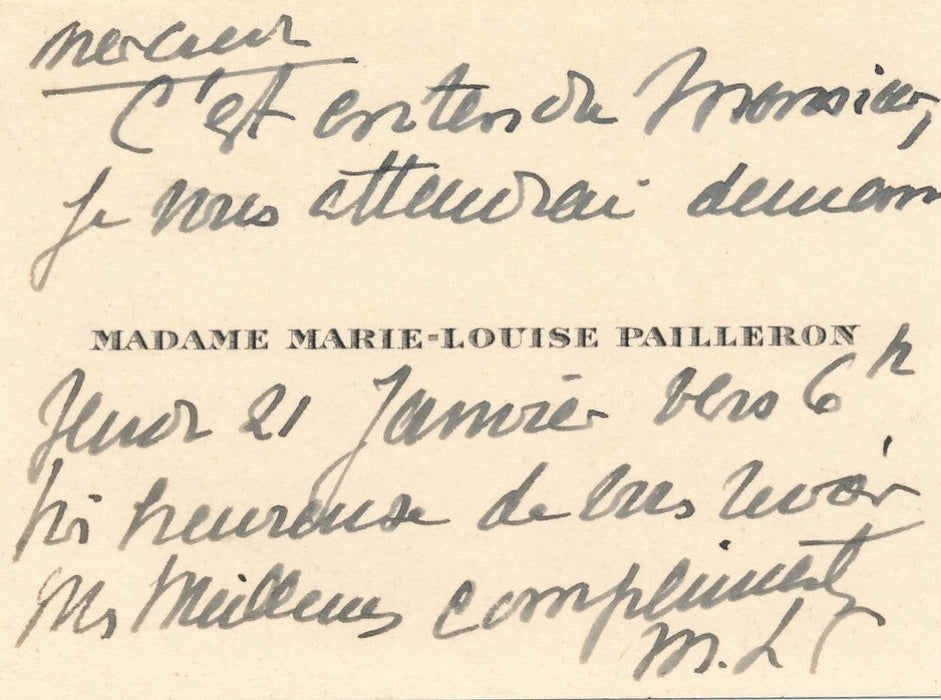 mercredi
C'est entendu Monsieur,
je vous attendrai demain
MADAME MARIE-LOUISE PAILLERON
Jeudi 21 Janvier vers 6h
très heureuse de vous revoir
Mes Meilleurs compliments
M. L